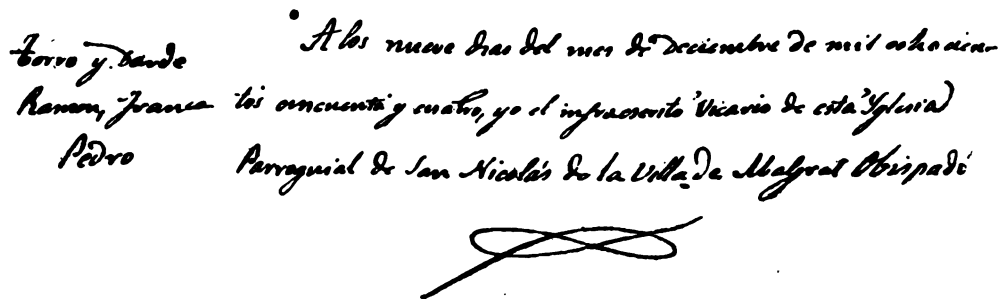 Torro y Darde
Ramon, Franco
Pedro
A los nueve dias del mes de Deciembre de mil ochocien-
tos cincuenta y cuatro, yo el infraescrito Vicario de esta Yglesia
Parroquial de San Nicolás de la Villa de Malgrat Obispado